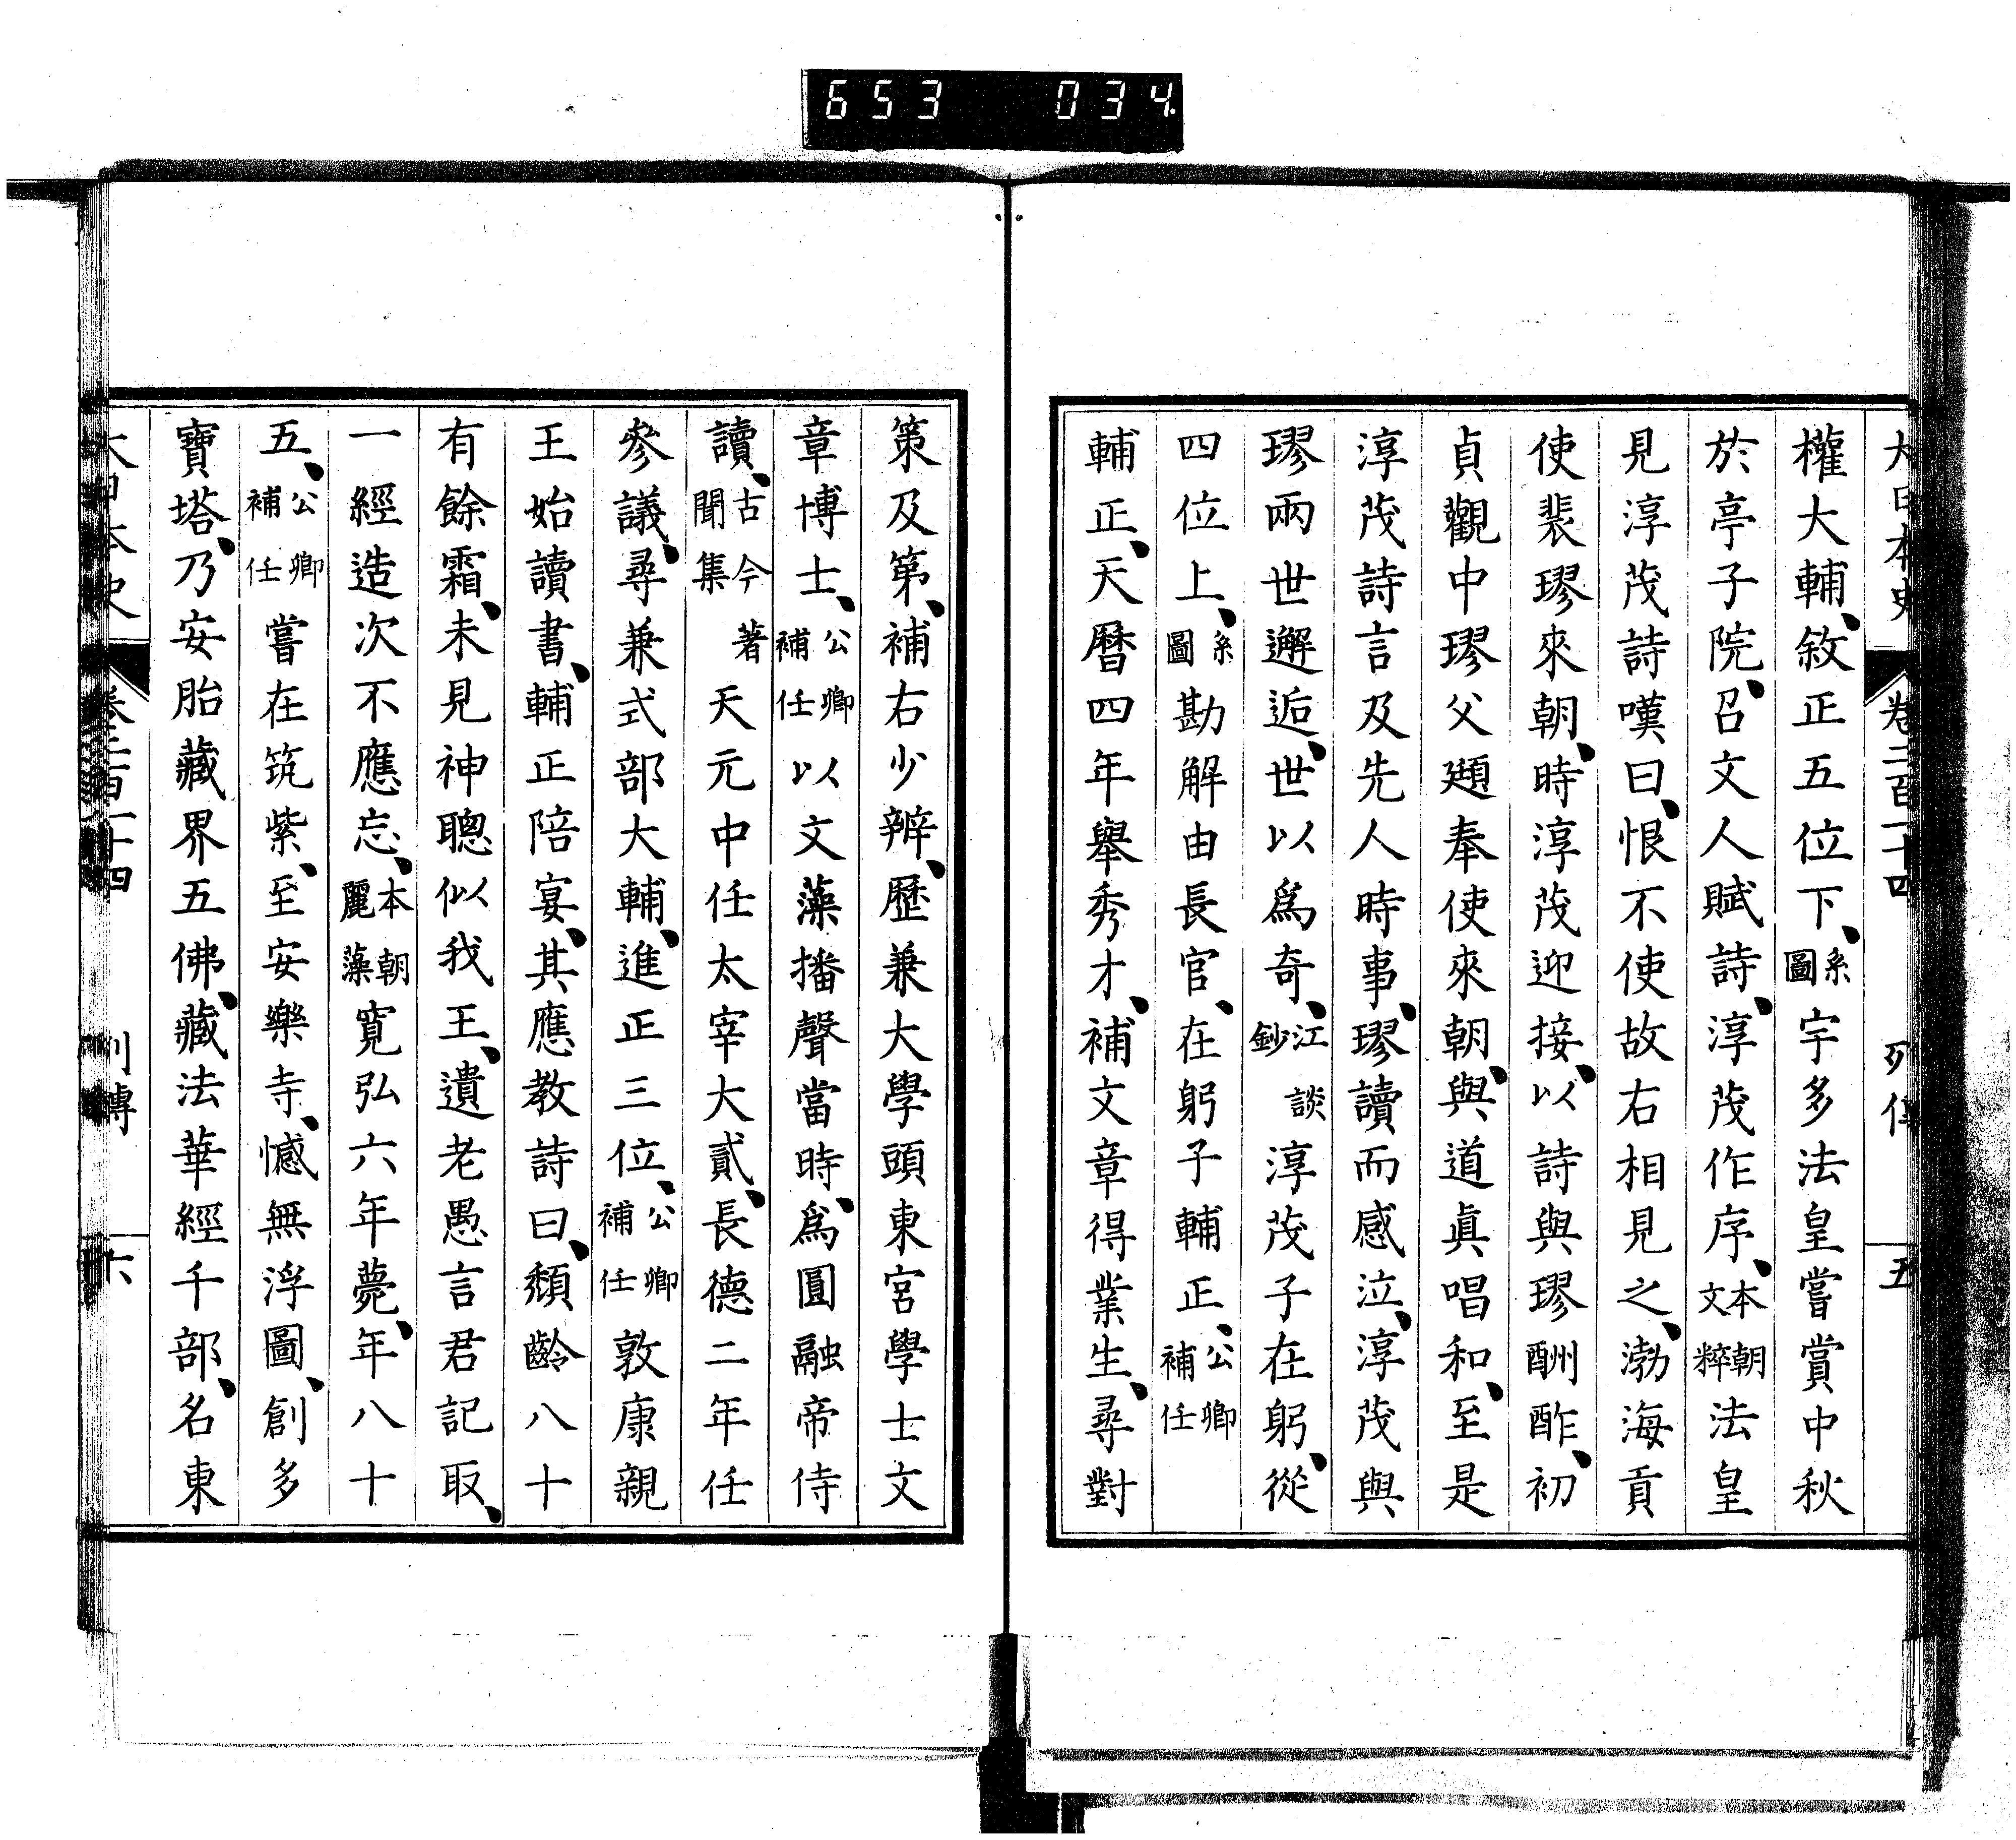 653 034
大日本史 卷二百一十四 列傳 五
權大輔、敘正五位下、系圖宇多法皇嘗賞中秋
於亭子院、召文人賦詩、淳茂作序、本朝文粹法皇
見淳茂詩嘆曰、恨不使故右相見之、渤海貢
使裴璆來朝、時淳茂迎接、以詩與璆酬酢、初
貞觀中璆父頲奉使來朝、與道眞唱和、至是
淳茂詩言及先人時事、璆讀而感泣、淳茂與
璆兩世邂逅、世以爲奇、江談鈔淳茂子在躬、從
四位上、系圖勘解由長官、在躬子輔正、公卿補任
輔正、天曆四年舉秀才、補文章得業生、尋對
策及第、補右少辨、歷兼大學頭東宮學士文
章博士、公卿補任以文藻播聲當時、爲圓融帝侍
讀、古今著聞集天元中任太宰大貳、長德二年任
參議、尋兼式部大輔、進正三位、公卿補任敦康親
王始讀書、輔正陪宴、其應教詩曰、頹齡八十
有餘霜、未見神聰似我王、遺老愚言君記取、
一經造次不應忘、本朝麗藻寬弘六年薨、年八十
五、公卿補任嘗在筑紫、至安樂寺、憾無浮圖、創多
寶塔、乃安胎藏界五佛、藏法華經千部、名東
大日本史 卷二百一十四 列傳 六